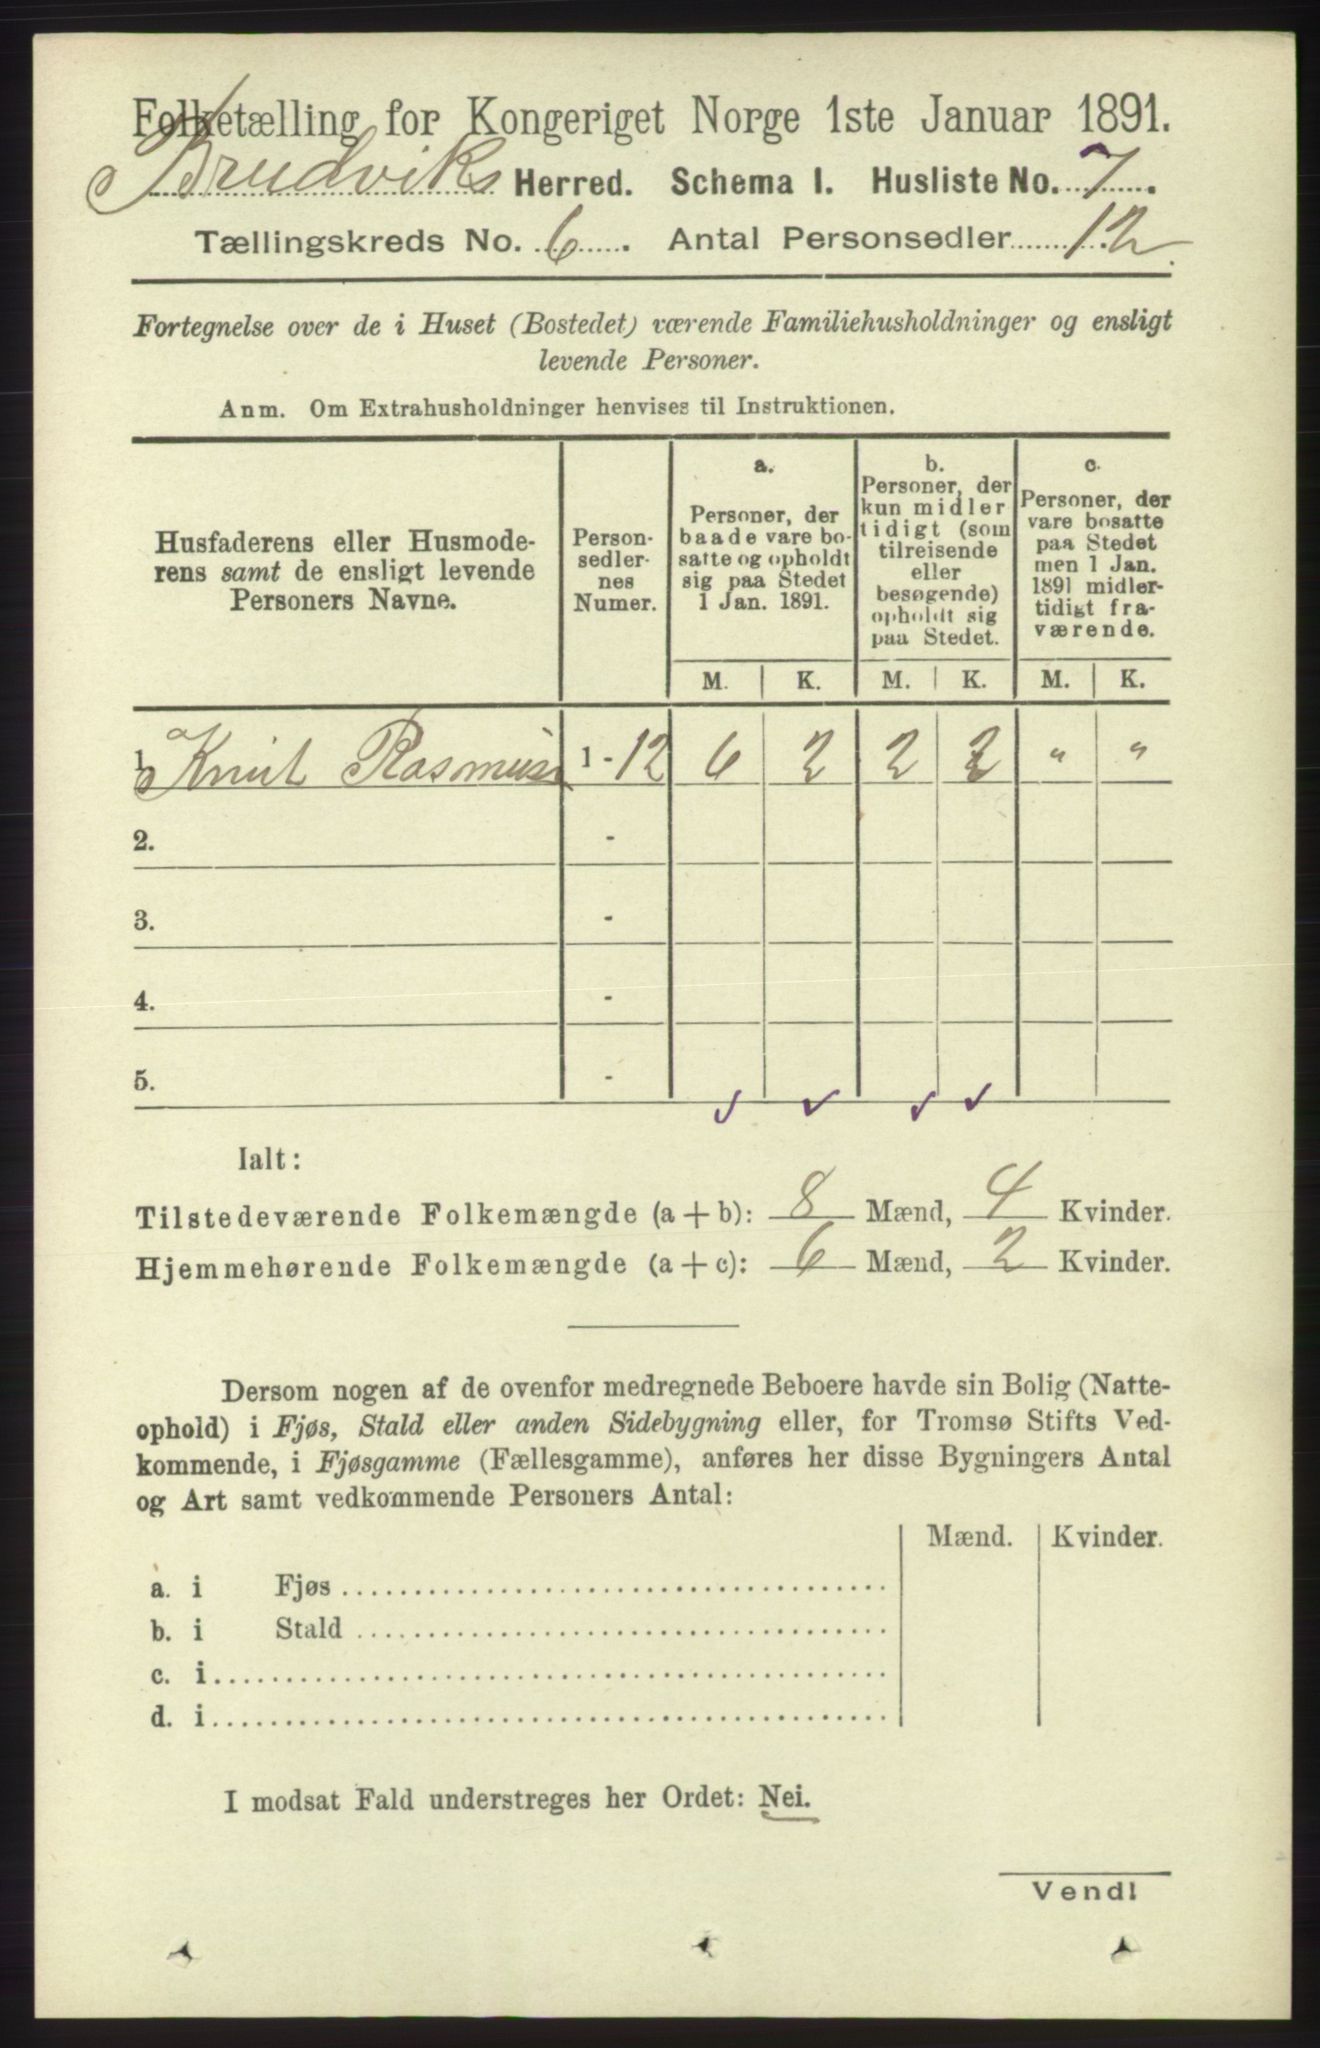 Folketælling for Kongeriget Norge 1ste Januar 1891.
Brudviks Herred. Schema I. Husliste No. 7.
Tællingskreds No. 6. Antal Personsedler 12.
Fortegnelse over de i Huset (Bostedet) værende Familiehusholdninger og ensligt
levende Personer.
Anm. Om Extrahusholdninger henvises til Instruktionen.
Husfaderens eller Husmode-
rens samt de ensligt levende
Personers Navne.
Person-
sedler-
nes
Numer.
a.
Personer, der
baade vare bo-
satte og opholdt
sig paa Stedet
1 Jan. 1891.
b.
Personer, der
kun midler
tidigt (som
tilreisende
eller
besøgende)
opholdt sig
paa Stedet.
c.
Personer, der
vare bosatte
paa Stedet
men 1 Jan.
1891 midler-
tidigt fra-
værende.
M. K. M. K. M. K.
1. Knut Rasmus 1 - 12 6 2 2 2 " "
2. -
3. -
4. -
5. -
Ialt:
Tilstedeværende Folkemængde (a + b): 8 Mænd, 4 Kvinder.
Hjemmehørende Folkemængde (a + c): 6 Mænd, 2 Kvinder.
Dersom nogen af de ovenfor medregnede Beboere havde sin Bolig (Natte-
ophold) i Fjøs, Stald eller anden Sidebygning eller, for Tromsø Stifts Ved-
kommende, i Fjøsgamme (Fællesgamme), anføres her disse Bygningers Antal
og Art samt vedkommende Personers Antal:
Mænd. Kvinder.
a. i Fjøs
b. i Stald
c. i
d. i
I modsat Fald understreges her Ordet: Nei.
Vend!